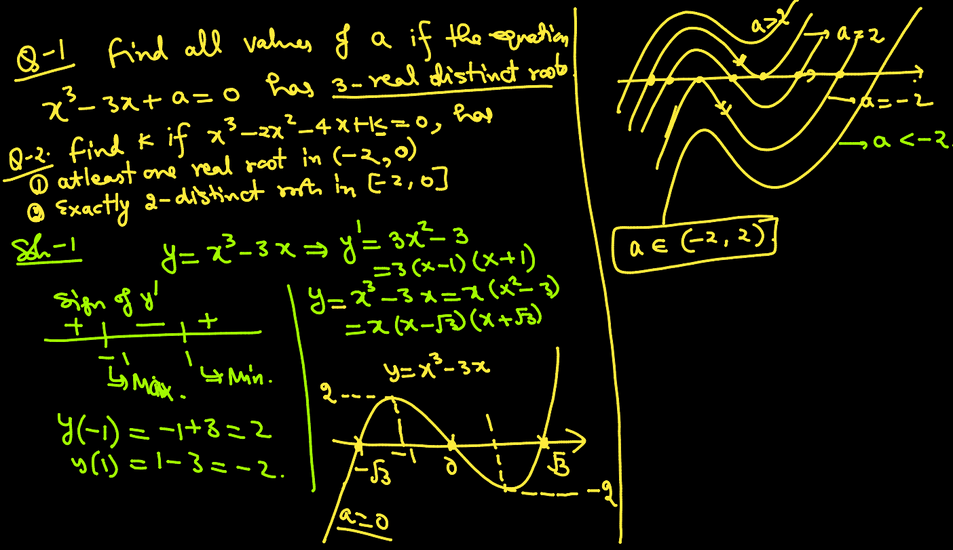 Q-1 Find all values of a if the equation
x³-3x+a=0 has 3-real distinct roots.
Q-2. find k if x³-2x²-4x+k=0, has
① atleast one real root in (-2,0)
② Exactly 2-distinct roots in [-2,0]
Soln-1
y=x³-3x ⇒ y'=3x²-3
=3(x-1)(x+1)
Sign of y'
+ - +
-1 1
↳Max. ↳Min.
y(-1)=-1+3=2
y(1)=1-3=-2.
y=x³-3x=x(x²-3)
=x(x-√3)(x+√3)
y=x³-3x
2
-√3 -1 0 1 √3
-2
a=0
a>2
→a=2
→a=-2
→a<-2
a∈(-2,2)